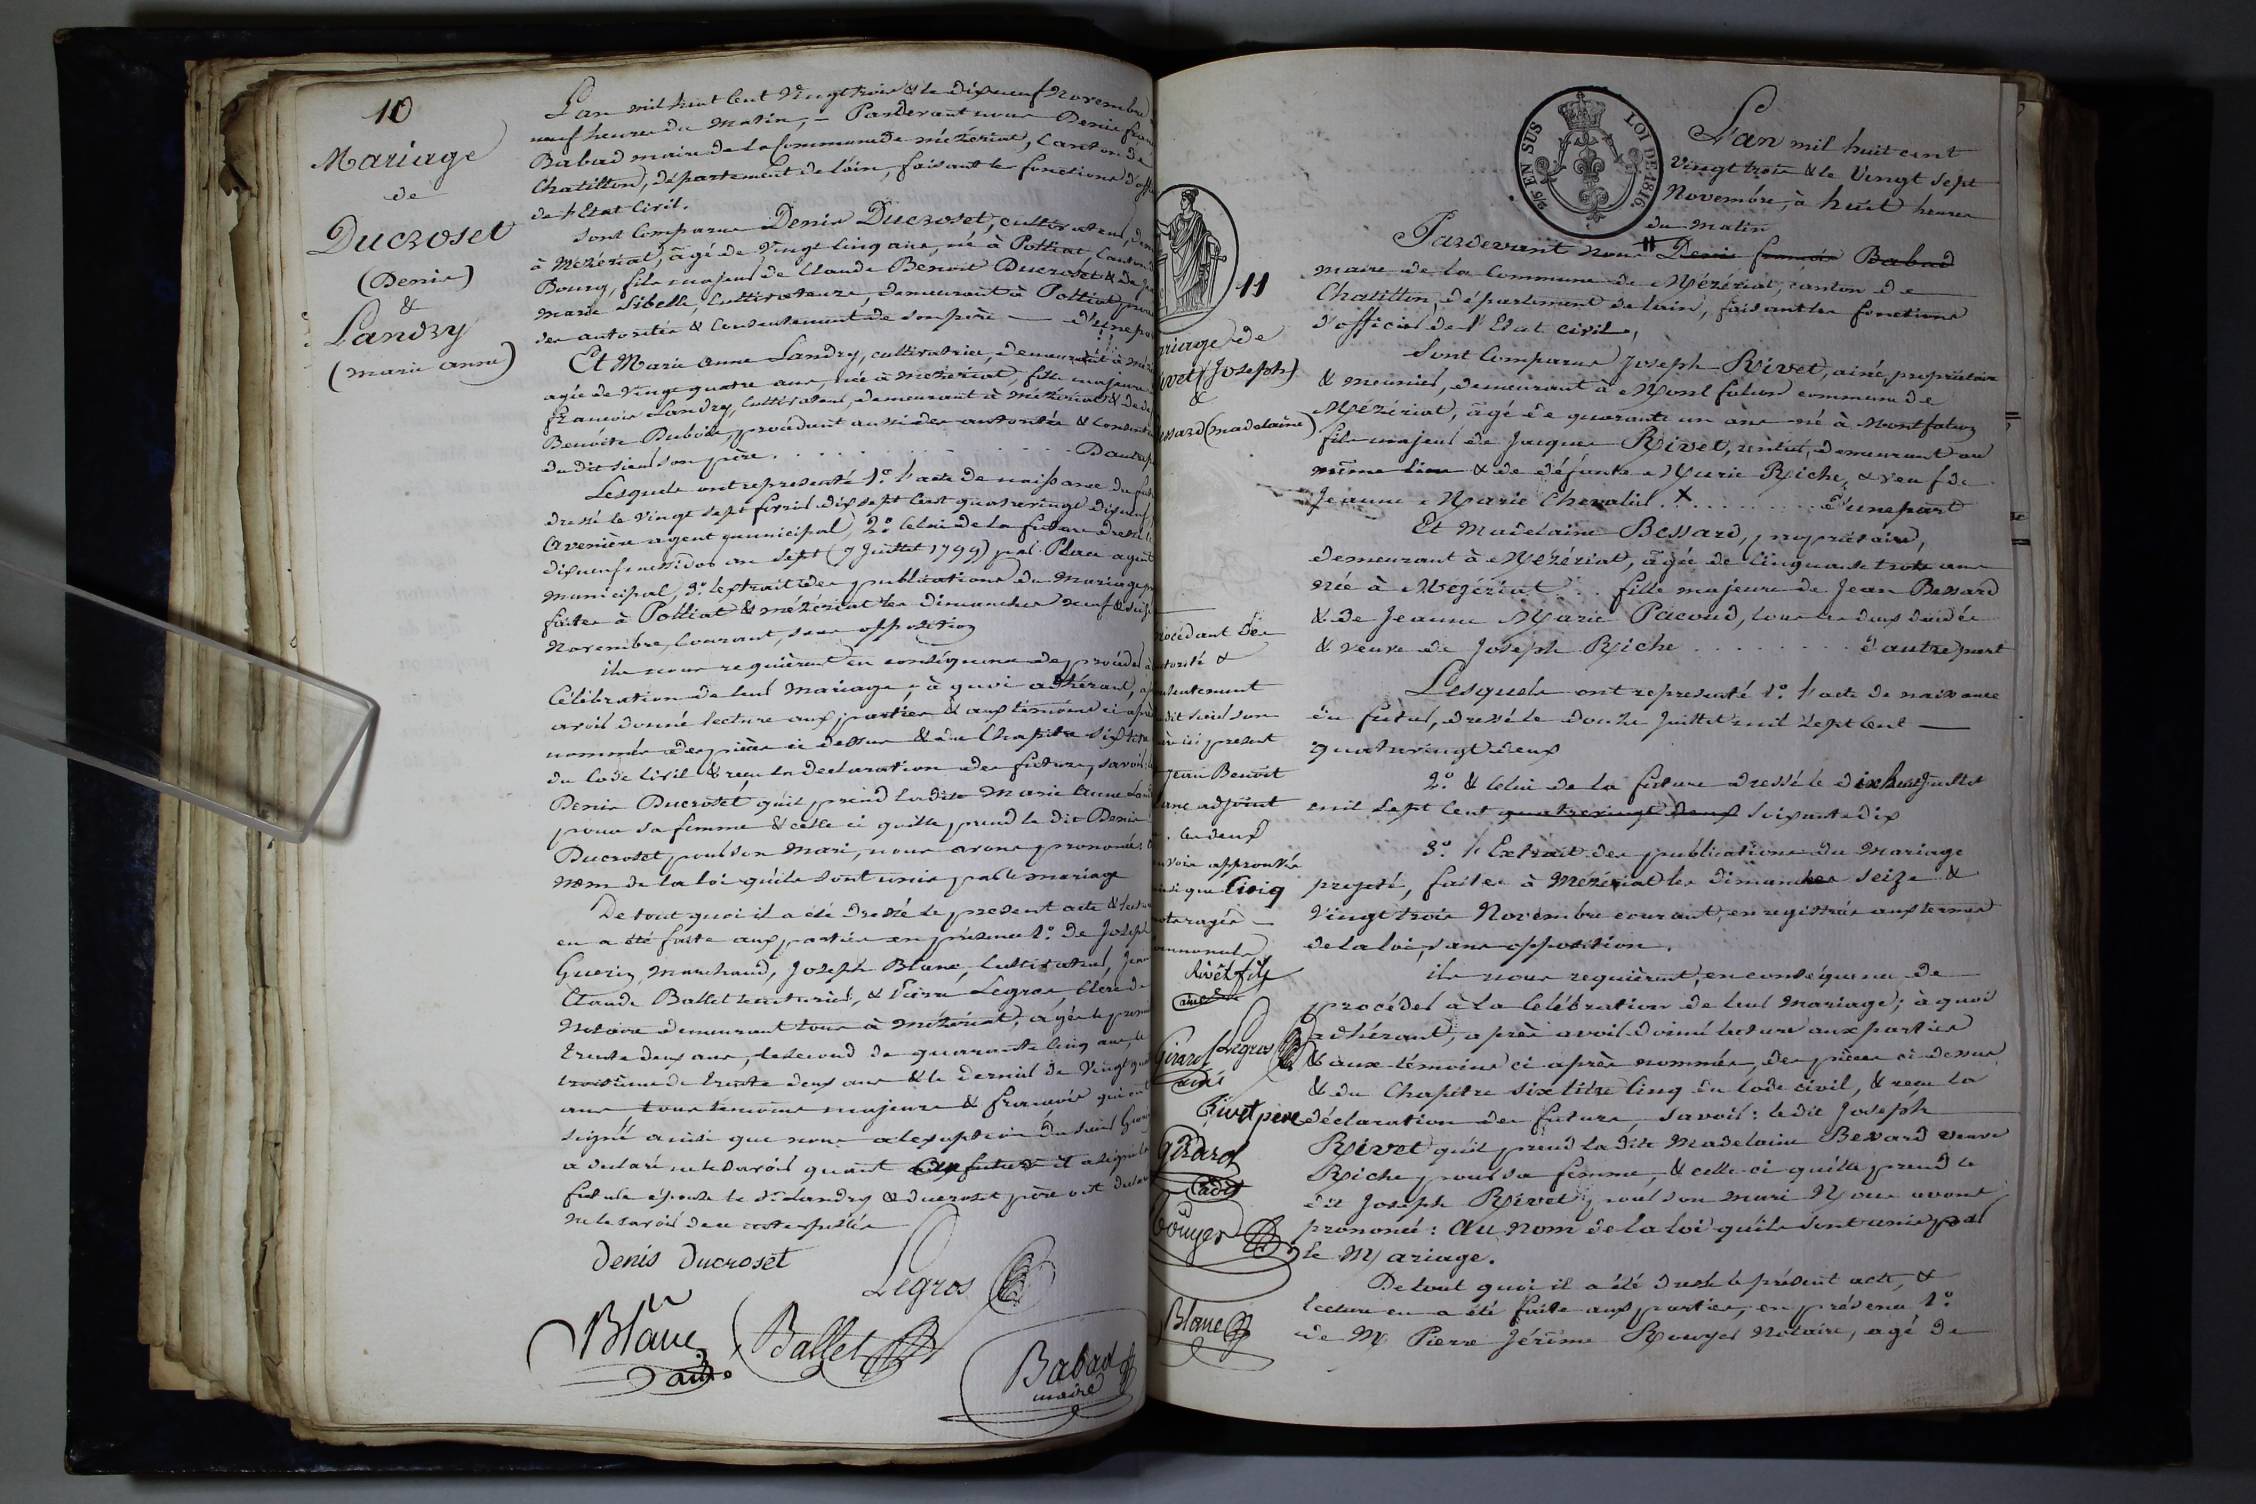 10
Mariage
de
Ducroset
(Denis)
&
Landry
(marie anne)
L'an mil huit Cent Vingt trois & le dixneuf Novembre
neuf heures du matin, - Pardevant nous Denis
Babad maire de la Commune de mézériat, Canton de
Chatillon, département de l'ain, faisant les fonctions
de l'Etat Civil.
Sont Comparus Denis Ducroset, cultivateur,
à Mézériat, âgé de Vingt cinq ans, né à Polliat, Canton
Bourg, fils majeur de Claude Benoit Ducroset & de
marie Sibelle, Cultivateurs, demeurant à Polliat,
des autorités & Consentement de son père — d'une
Et Marie Anne Landry, cultivatrice, demeurant à
agée de Vingt quatre ans, née à Mézériat, fille majeure
françois Landry, Cultivateur, demeurant à mézériat & de
Benoite Dubois, procédant aussi des autorités &
du dit sieur son père.
Lesquels ont representé 1.o l'acte de naissance du
dressé le Vingt sept dix sept Cent quatrevingt dixneuf
agent municipal, 2.o Celui de la future dressé
dixneuf messidor an Sept (7 Juillet 1799) par agent
municipal, 3.o l'extrait des publications du Mariage
faites à Polliat & mézériat les dimanches neuf &
Novembre, Courant, sans opposition
ils nous requièrent en conséquence de procéder
Célébration de leur mariage, à quoi adhérant,
avoir donné lecture aux parties & aux témoins ci
nommés des pièces ci dessus & du Chapitre Six
du Code Civil & reçu la declaration des futurs, savoir:
Denis Ducroset qu'il prend la dite Marie Anne
pour sa femme & celle ci qu'elle prend le dit Denis
Ducroset pour son mari, nous avons prononcé
nom de la loi qu'ils sont unis par le mariage
De tout quoi il a été dressé le present acte &
en a été faite aux parties en présence 1.o de Joseph
Guerin, Marchand, Joseph Blanc, Cultivateur,
Claude Ballet & Pierre Legros, clerc de
Notaire demeurant tous à mézériat, agés le
trente deux ans, le second de quarante cinq ans, le
troisième de trente deux ans & le dernier de Vingt
ans tous témoins majeurs & françois qui ont
signé ainsi que nous a l'exception du sieur
a declaré ne le savoir quant il a signé
future épouse le sr. Landry & ducroset père ont
ne le savoir de ce
denis ducroset
Legros
Blanc
Ballet
Babad
maire
5/6 EN SUS LOI DE 1816.
11
de
(Joseph)
&
(madelaine)
L'an mil huit cent
Vingt trois & le Vingt sept
Novembre, à huit heures
du matin
Pardevant nous Denis françois Babad
maire de la Commune de Mézériat, canton de
Chatillon, département de l'ain, faisant les fonctions
d'officier de l'Etat civil,
Sont Comparus Joseph Rivet, ainé, propriétaire
& meunier, demeurant à Mont falcon commune de
Mézériat, âgé de quarante un ans né à Montfalcon
fils majeur de Jacques Rivet, rentier, demeurant au
même lieu & de défunte Marie Riche, & veuf de
Jeanne Marie Chevalier X . . . . . d'une part
Et Madelaine Bessard, propriétaire,
demeurant à Mézériat, âgée de Cinquante trois ans
née à Mézériat . . fille majeure de Jean Bessard
& de Jeanne Marie Pacoud, tous les deux décédés
& veuve de Joseph Riche . . . . . d'autre part
Lesquels ont representé 1.o l'acte de naissance
du futur, dressé le douze Juillet mil sept Cent —
quatrevingt deux
2.o & Celui de la future dressé le dix huit Juillet
mil sept Cent quatrevingt deux soixante dix
3.o l'Extrait des publications du Mariage
projeté, faites à Mézériat les dimanches Seize &
Vingt trois Novembre courant, enregistrés aux termes
de la loi, sans opposition.
ils nous requièrent, en conséquence de
procéder à la Célébration de leur mariage; à quoi
adhérant, après avoir donné lecture aux parties
& aux témoins ci après nommés, des pièces ci dessus
& du Chapitre six titre Cinq du Code civil, & reçu la
déclaration des futurs, savoir: le dit Joseph
Rivet qu'il prend la dite Madelaine Bessard veuve
Riche pour sa femme, & celle ci qu'elle prend le
dit Joseph Rivet, pour son mari Nous avons
prononcé: Au nom de la loi qu'ils sont unis par
le Mariage.
De tout quoi il a été dressé le présent acte, &
lecture en a été faite aux parties, en présence 1.o
de M Pierre Jérôme Rouyer Notaire, agé de
present
Jean Benoît
adjoint
les deux
approuvés
que Cinq
Rivet fils
ainé
Girard
Legros
ainé
Rivet père
Girard
cadet
Rouyer
Blanc